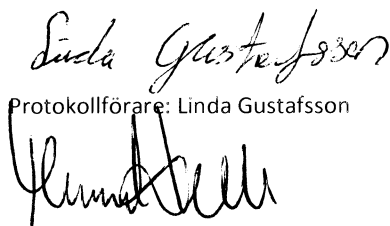 Linda Gustafsson
Protokollförare: Linda Gustafsson